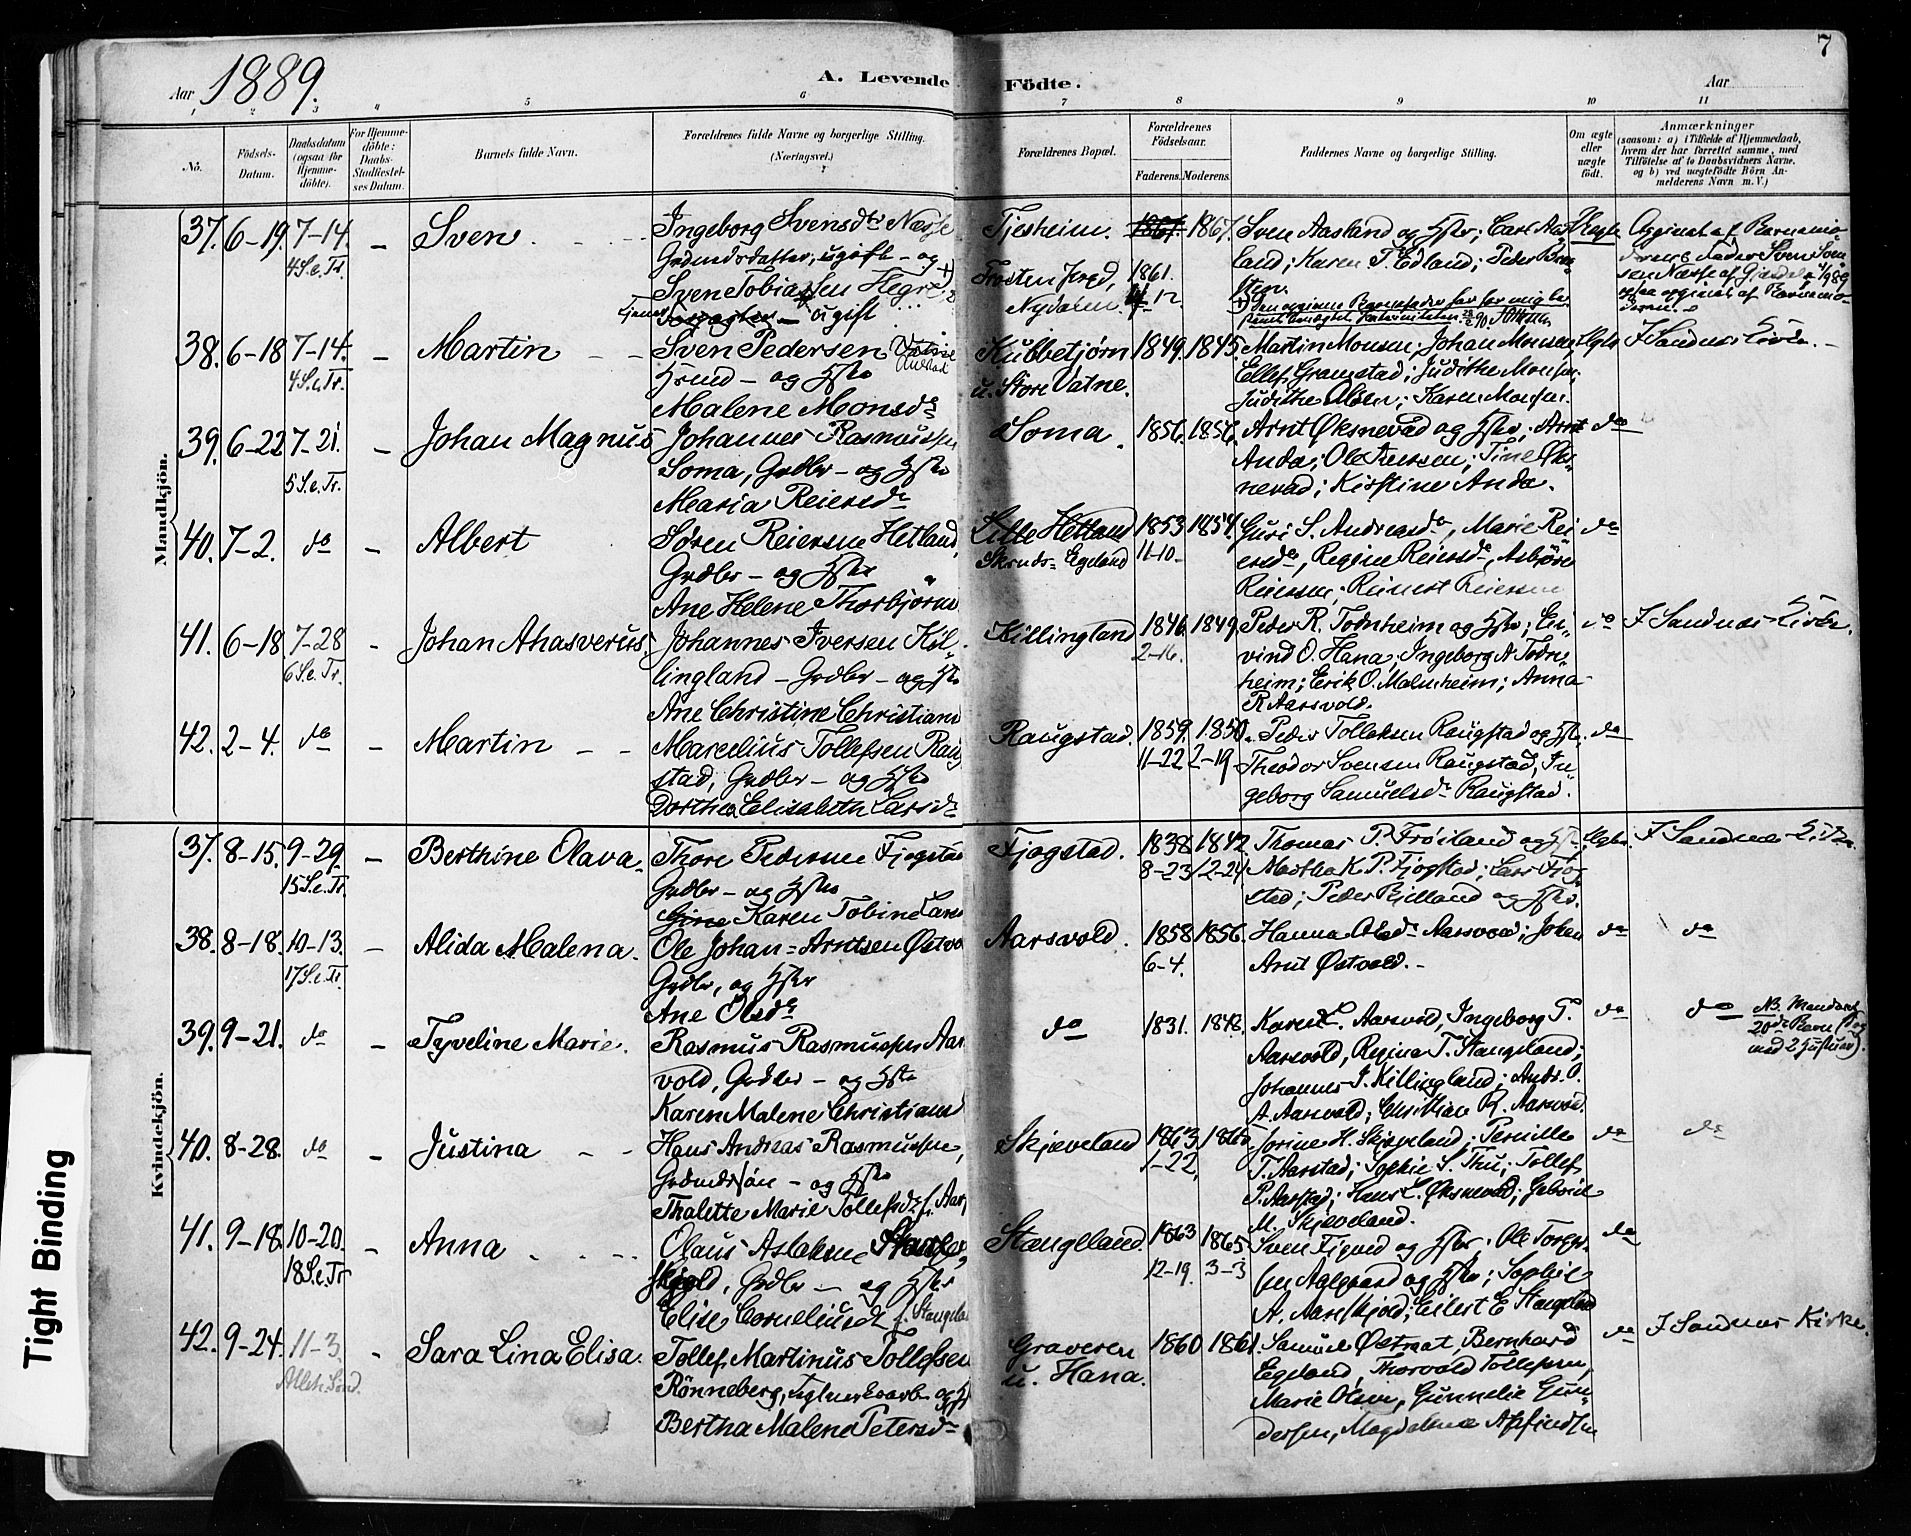 7
Aar 1889.
A. Levende Födte.
Aar
1 2 3 4 5 6 7 8 9 10 11
No.
Födsels-
Datum.
Daabsdatum
(ogsaa for
Hjemme-
döbte).
For Hjemme-
döbte:
Daabs-
Stadfæstel-
ses Datum.
Barnets fulde Navn.
Forældrenes fulde Navne og borgerlige Stilling.
(Næringsvei.)
Forældrenes Bopæl.
Forældrenes
Födselsaar.
Faderens. Moderens.
Faddernes Navne og borgerlige Stilling.
Om ægte
eller
uægte
født.
Anmærkninger
(saasom: a) i Tilfælde af Hjemmedaab,
hvem der har forrettet samme, med
Tilföielse af to Daabsvidners Navne.
og b) ved uægtefödte Börn An-
melderens Navn m. V.)
Mandkjön.
37. 6-19. 7-14. - Sven
4 S. e. Tr.
Ingeborg Svensdtr
ugift - og
Sven Tobiassen Hegre
ugift
Tjesheim. 1867.
Nydalen
1861.
Sven Aasland og Hstr; Carl Aas-
land; Karen T. Edland; Peder
38. 6-18 7-14. - Martin
4 S. e. Tr.
Sven Pedersen
Hsmd - og Hstr
Malene Monsdr
Kubbetjörn
u. Store Vatne.
1849. 1845.
Martin Monsen; Johan Monsen;
Ellef Gramstad; Judithe Monsen;
Judithe Olsen; Karen Monsen.
I Sandnes Kirke.
39. 6-22 7-21. - Johan Magnus
5 S. e. Tr.
Johannes Rasmussen
Soma, Grdbr - og Hstr
Maria Reiersdr
Soma. 1856. 1856.
Arnt Øksnevad og Hstr; Arnt
Anda; Ole Iversen; Tine Øks-
nevad; Kirstine Anda.
do
40. 7-2. do - Albert
Søren Reiersen Hetland,
Grdbr - og Hstr
Ane Helene Thorbjørns
Lille Hetland
Skruds- Egeland
1853 1854.
11-10.
Guri S. Andreasdr, Marie Rei-
ersdr, Regine Reiersdr, Asbjörn
Reiersen, Reinert Reiersen
do
41. 6-18 7-28 - Johan Ahasverus.
6 S. e. Tr.
Johannes Iversen Kil-
lingland - Grdbr - og Hstr
Ane Christine Christians
Killingland 1846. 1849.
2-16.
Peder R. Todnheim og Hstr; Ei-
vind O. Hana; Ingeborg A Todn-
heim; Erik O. Malmheim; Anna
R Aarsvold.
do I Sandnes Kirke.
42. 2-4. do - Martin
Marcelius Tollefsen Raug
stad, Grdbr - og Hstr
Dorthea Elisabeth Larsdr
Raugstad. 1859. 1850.
11-22 2-19
Peder Tollaksen Raugstad og Hstr.
Theodor Svensen Raugstad, In-
geborg Samuelsdr Raugstad.
do
Kvindekjön.
37. 8-15. 9-29. - Berthine Olava.
15 S. e. Tr.
Thore Pedersen Fjogstad
Grdbr - og Hstr
Karen Tobine Lars
Fjogstad. 1838 1842
8-23 12-24
Thomas P. Frøiland og Hstr.
Martha K. P. Fjogstad; Lars Fjog-
stad; Peder Bjelland og Hstr.
I Sandnes Kirke.
38. 8-18. 10-13. - Alida Malena.
17 S. e. Tr.
Ole Johan Arntsen Østvo
Grdbr, og Hstr
Ane Olsdr
Aarsvold. 1858 1856.
6-4.
Hanna Olsdr Aarsvold; Johan
Arnt Østvold.
do do
39. 9-21. do - Tyveline Marie.
Rasmus Rasmussen Aar
vold, Grdbr - og Hstr
Karen Malene Christians
do 1831. 1848.
Karen L. Aarsvold, Ingeborg T.
Aarsvold, Regina T. Stangeland;
Johannes J. Killingland; Andr. O.
A. Aarsvold; Christian R. Aarsvold.
do do NB. Mandens
20de Barn (
med 2 Hustruer).
40. 8-28. do - Justina
Hans Andreas Rasmussen,
Grdmdssøn - og Hstr
Thalette Marie Tollefsdr f. Aar
Skjæveland 1863
1-22.
Jorine H. Skjæveland; Pernille
T. Aarstad; Sophie S. Thu; Tollef
P. Aarstad; Hans L. Øksnevad; Gabriel
M. Skjæveland.
do do
41. 9-18. 10-20. - Anna
18 S. e. Tr
Olaus Aslaksen
skjold, Grdbr - og Hstr
Elise Corneliusdr f. Stangeland
Stangeland. 1863 1865.
12-19. 3-3
Sven Figved og Hstr; Ole Torger-
sen Aalgaard og Hstr; Sophie
A. Aareskjold; Eilert E Stangeland
do
42. 9-24. 11-3. - Sara Lina Elisa.
Alleh. Sønd.
Tollef Martinus Tollefsen
Rönneberg, Teglverksarb og Hstr
Bertha Malene Petersdr
Graveren
u. Hana.
1860 1861.
Samuel Østraat, Bernhard
Egeland, Thorvald Tollefsen,
Marie Olsen, Gunnelie Gun-
dersen, Magdalena Asfindsen
do I Sandnes Kirke.
Tight Binding